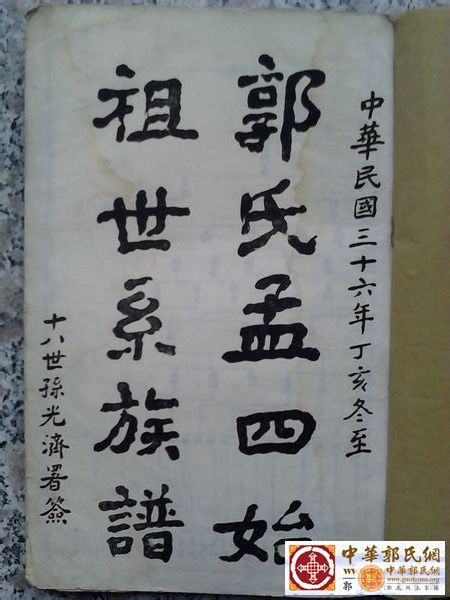 中華民國三十六年丁亥冬至
郭氏孟四始
祖世系族譜
十八世孫光濟署簽
中華郭氏網
郭
中華郭氏網
www.guoshome.org